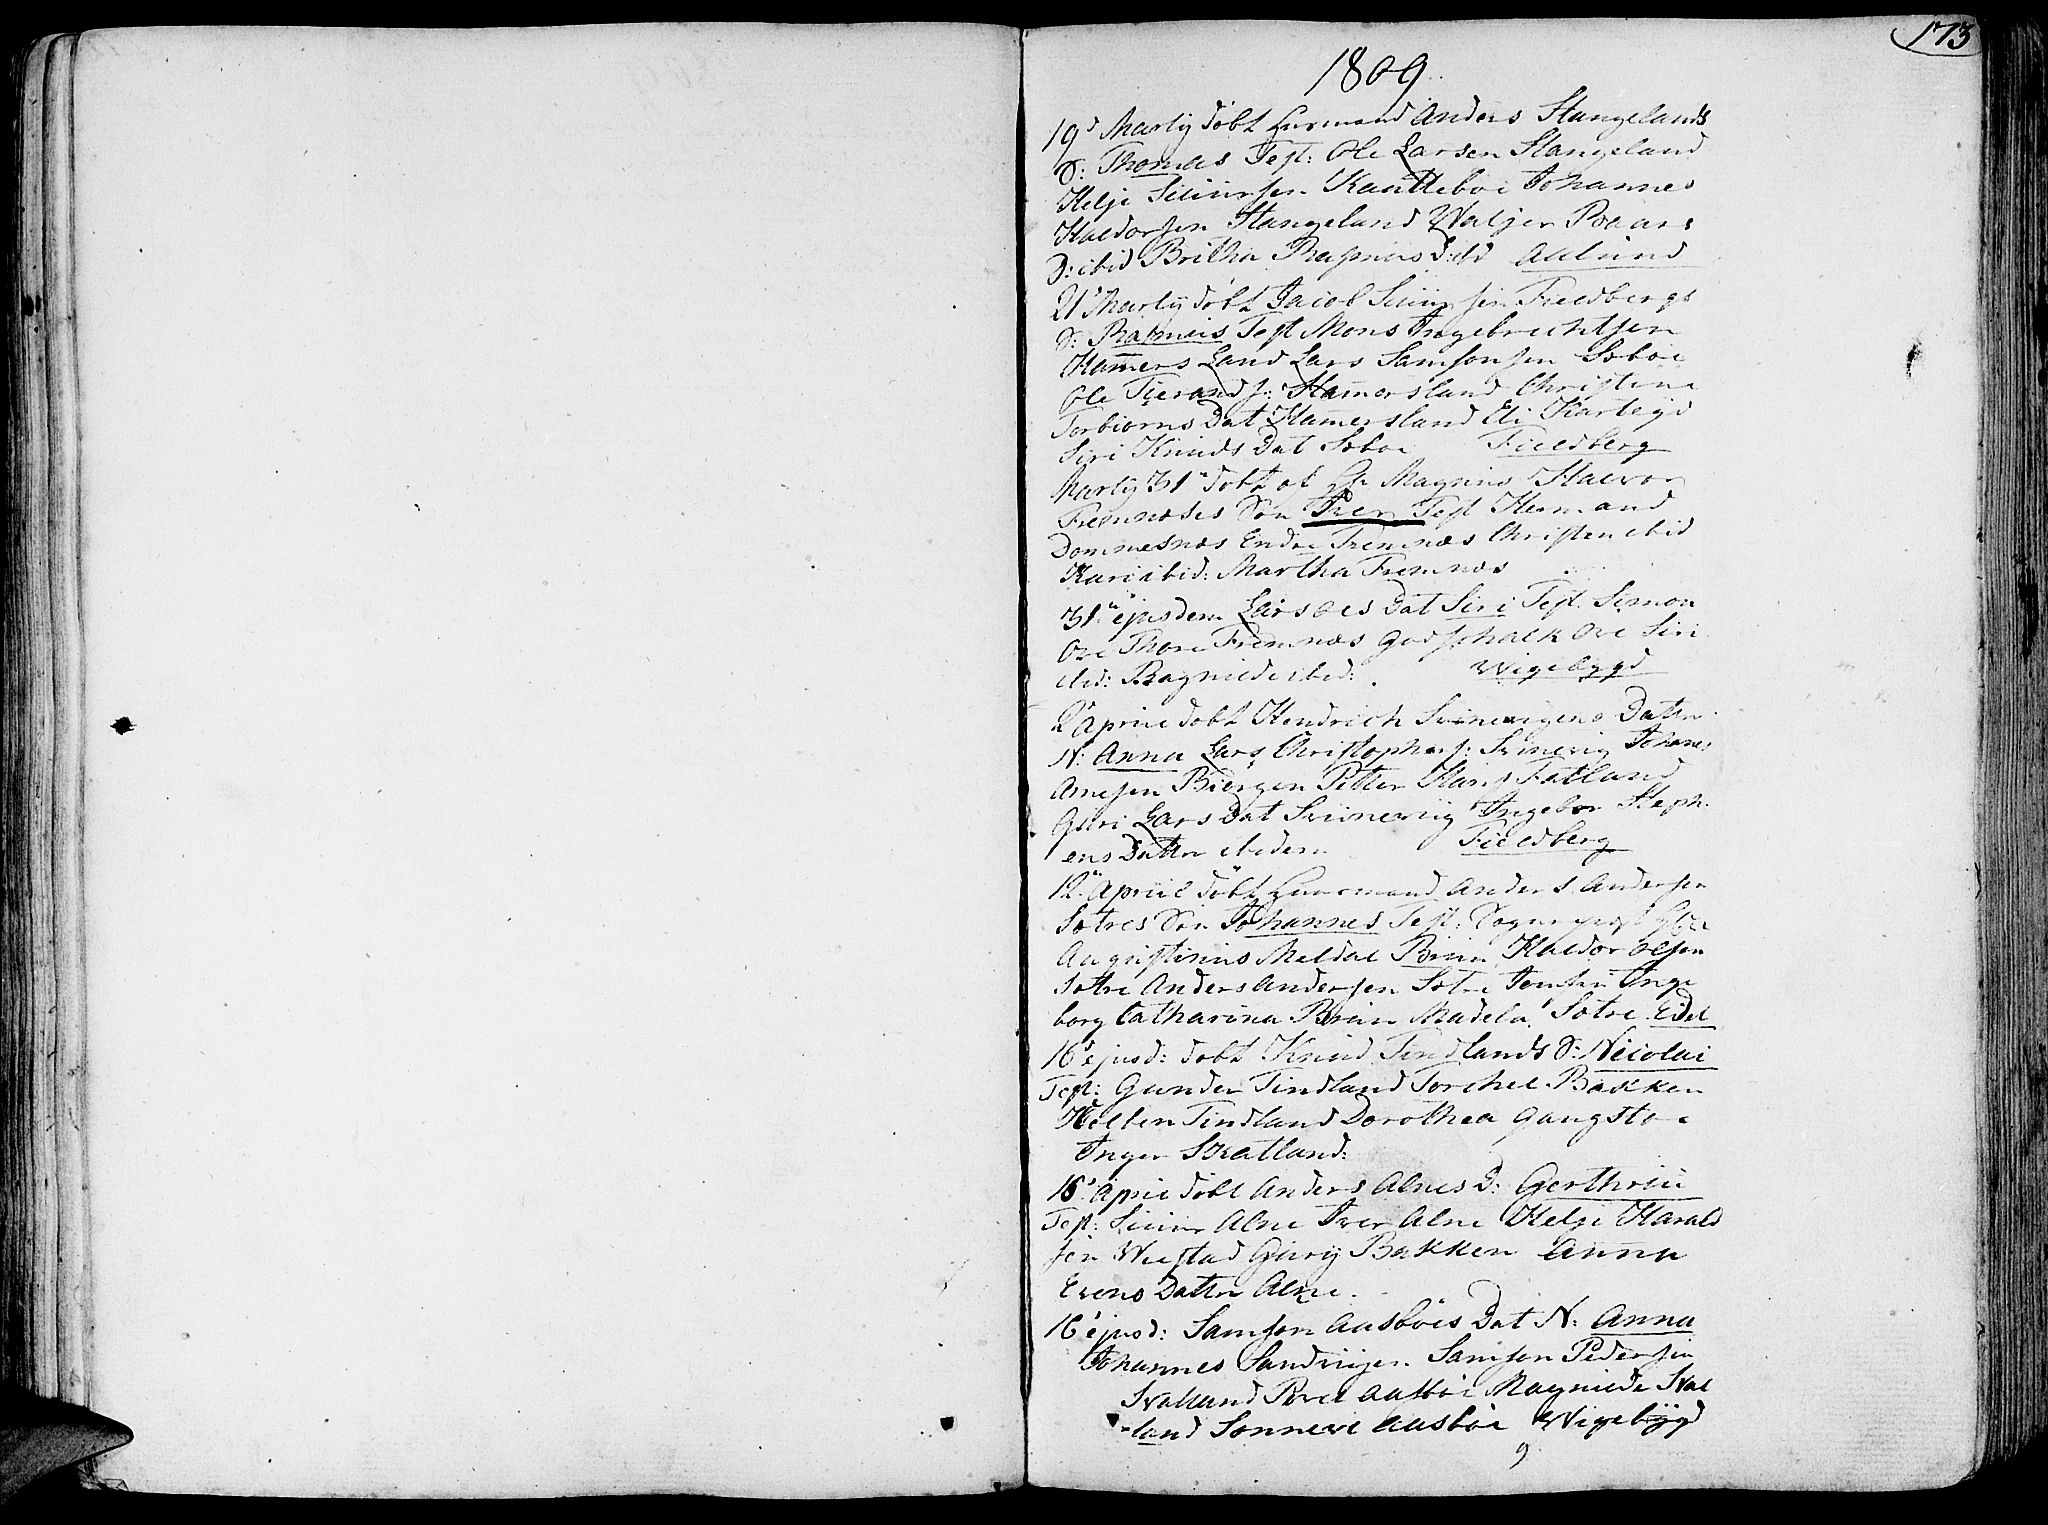 173
1809
19d Martij döbt Huusmand Anders Stangelands
S: Thomas Test: Ole Larsen Stangeland
Helje Siursen Kantteboe Johannes
Haldorsen Stangeland Waljer Roaars
D: ibid Britha Rasmus D: ibd Aalund
21' Martij döbt Jacob Siursen Fieldbergs
S: Rasmus Test Mons Ingebrechtsen
Hamersland Lars Samsonsen Soboe
Ole Tierands: Hamersland Christine
Torbiorns Dat Hamersland Eli
Siri Knuds Dat Soboe Fieldberg
Martij 31 döbt af Hr Magnus Halvor
Fremnæses Sön Iver Test Hermand
Dommesnæs Endre Fremnæs Christen ibid
Kari ibid: Martha Fremnæs
31 ejusdem Lars Oes Dat Siri Test. Simon
Ove Thore Fremnæs Godschalk Ove Siri
ibid: Ragnilde ibid: Wigebygd
2' April döbt Hendrich Svinevigens Datter
N: Anna Lars Christophers: Svinevig Johans
Arnesen Biergen Petter Hans Fatland
Guri Lars Dat Sviineviig Ingebor Steph-
ens Datter ibidem Fieldberg
12 April döbt Huusmand Anders Andersen
Sotres Sön Johannes Test: Sogneprest Hr
Augustinus Meldal Bruun Haldor Olsen
Sotre Anders Andersen Sotre Inge
borg Catharina Bruun Madela Sotre Eidet
16' ejusd: döbt Knud Tindlands S: Nicolai
Test: Gunder Tindland Torchel Bakken
Tindland Dorothea Gangstoe
Inger Skatland:
16' April döbt Anders Alnes D: Gerthrui
Test: Siur Alne Iver Alne Helje Harald
sen Wiestad Gurij Bakken Anna
Evens Datter Alne.
16' ejusd: Samson Aasböes Dat N: Anna
Johannes Sandvigen Samson Pedersen
Svalland Povel Aasböe Magnilde Sval
-land Sonneve Aasböe Wigebÿgd